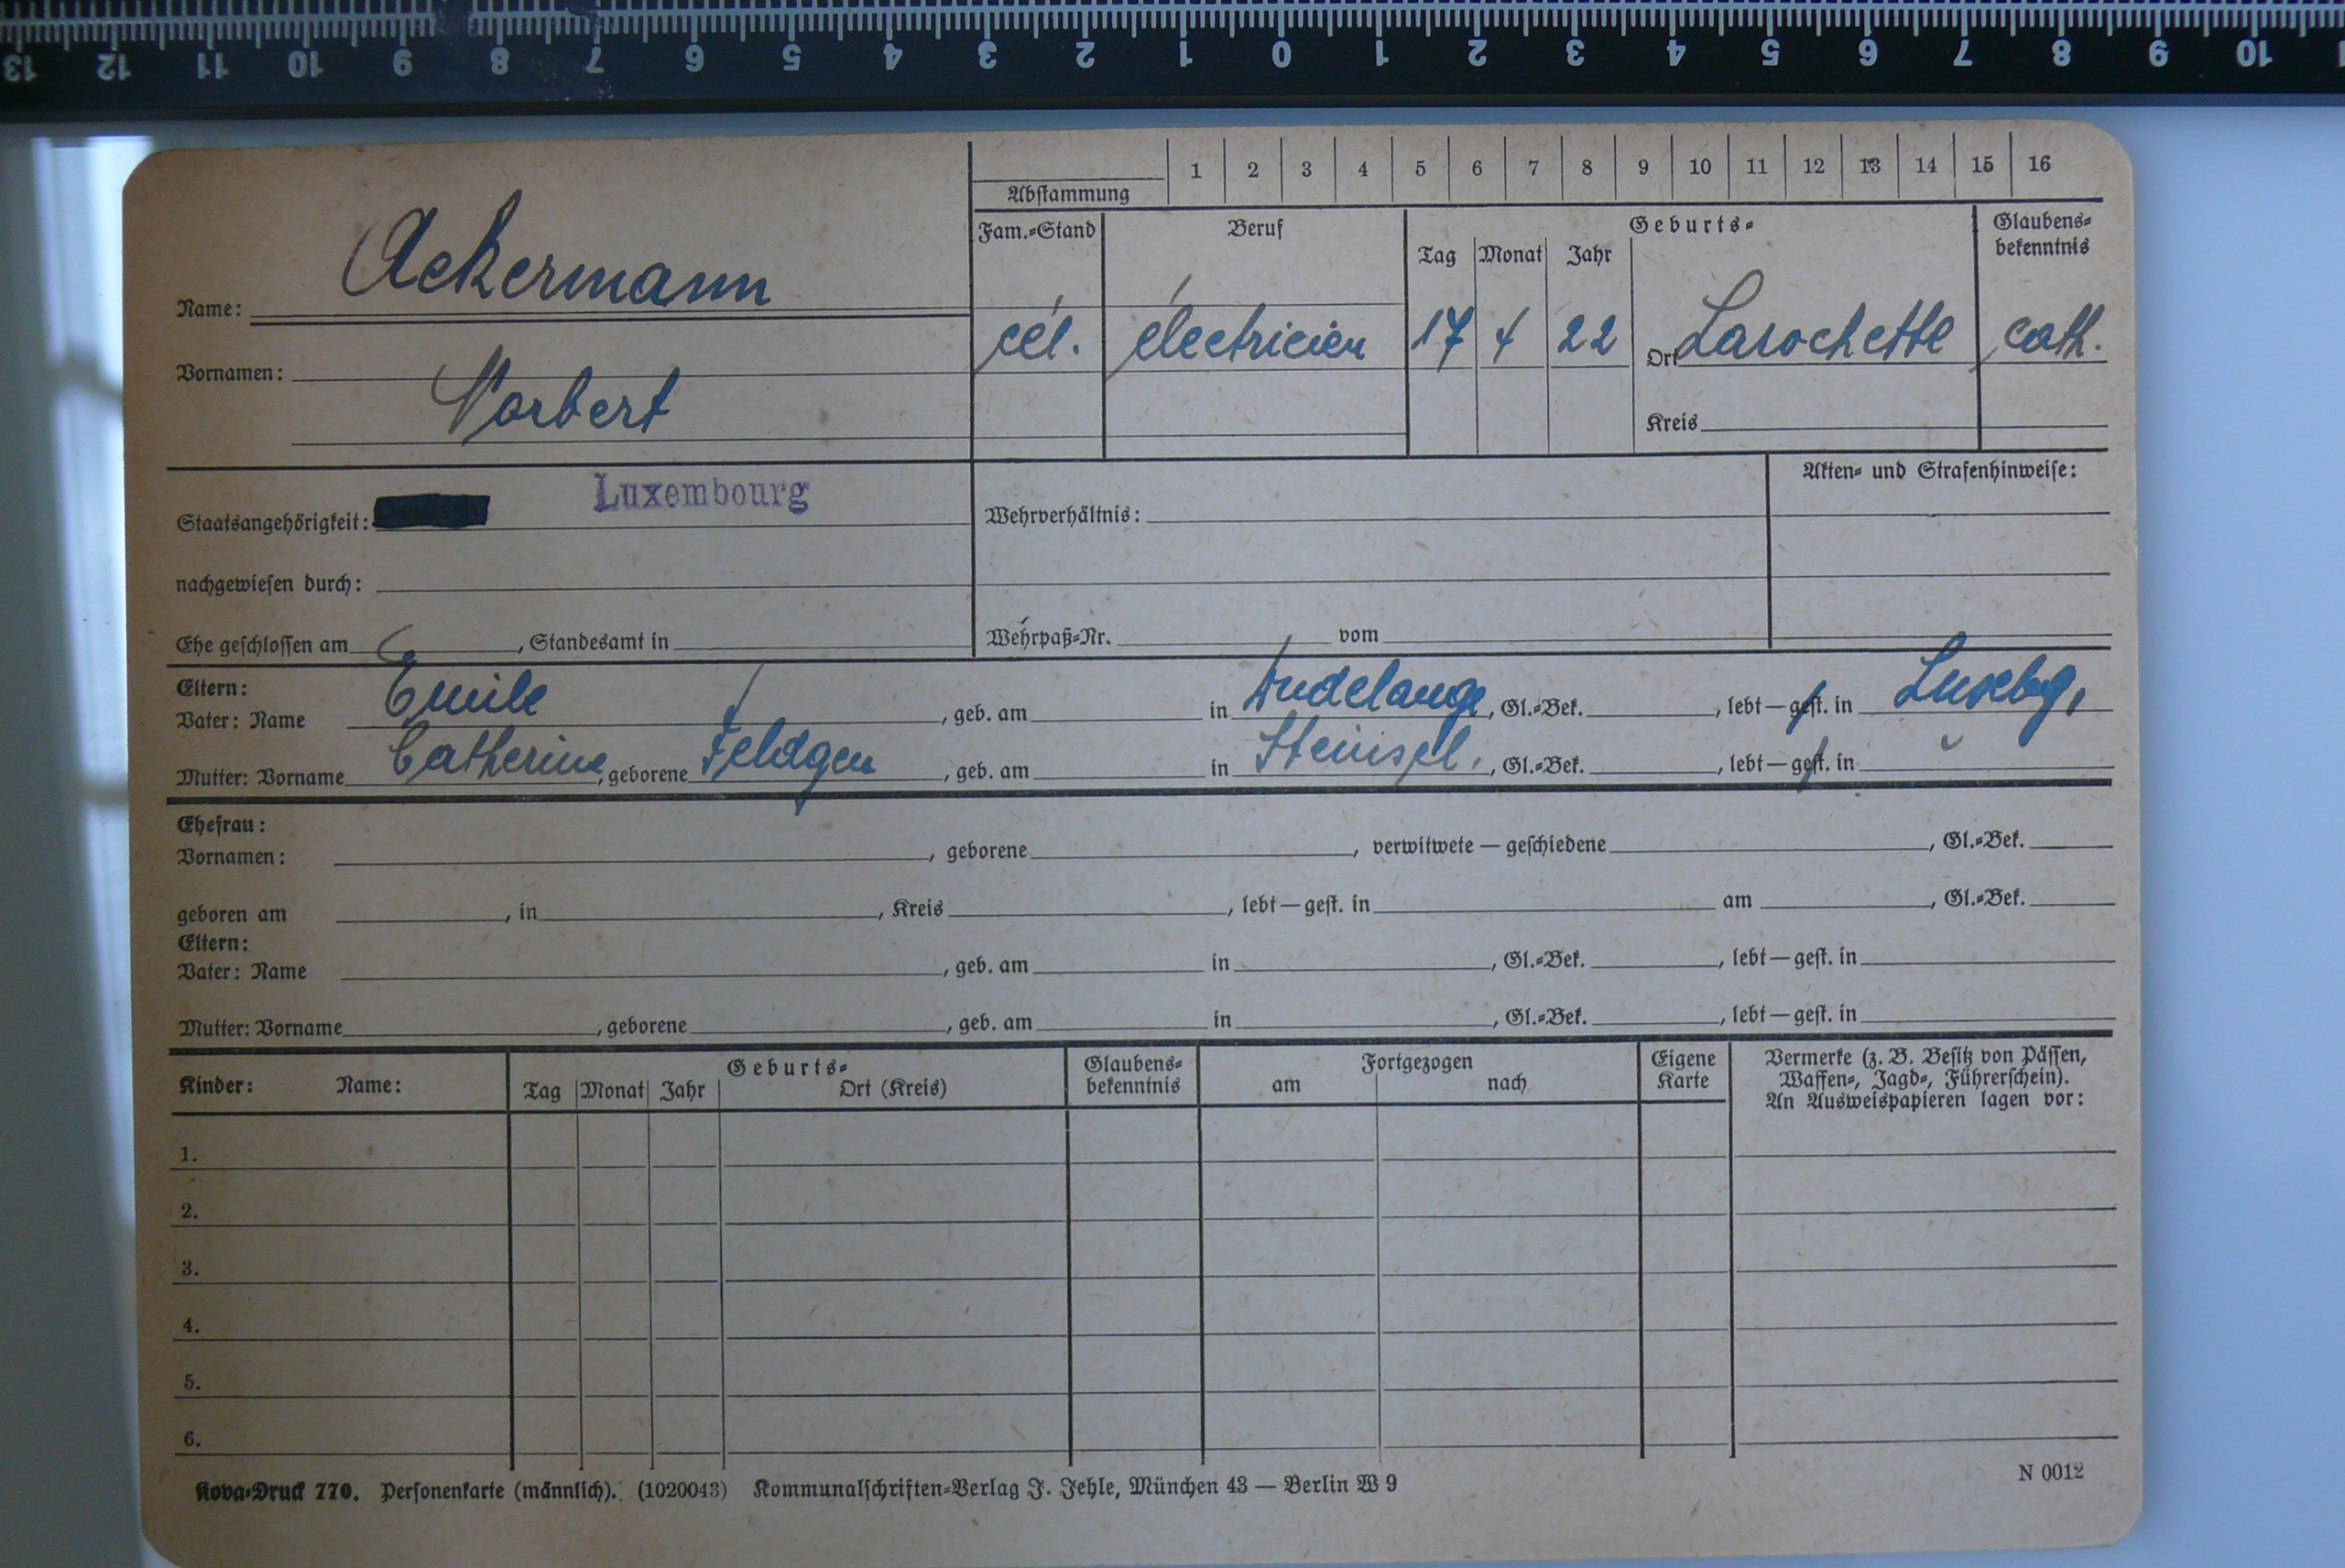 13 12 11 10 9 8 7 6 5 4 3 2 1 0 1 2 3 4 5 6 7 8 9 10
Abstammung 1 2 3 4 5 6 7 8 9 10 11 12 13 14 15 16
Name: Ackermann
Vornamen: Norbert
Fam.-Stand
cél.
Beruf
électricien
Geburts-
Tag Monat Jahr
17 4 22 Ort Larochette
Kreis
Glaubens-
bekenntnis
cath.
Staatsangehörigkeit: Luxembourg
nachgewiesen durch:
Ehe geschlossen am , Standesamt in
Wehrverhältnis:
Wehrpaß-Nr. vom
Akten- und Strafenhinweise:
Eltern:
Vater: Name Emile , geb. am in Dudelange , Gl.-Bek. , lebt — gest. in Luxebg,
Mutter: Vorname Catherine , geborene Feldgen , geb. am in Steinsel. , Gl.-Bek. , lebt — gest. in
Ehefrau:
Vornamen: , geborene , verwitwete — geschiedene , Gl.-Bek.
geboren am , in , Kreis , lebt — gest. in am , Gl.-Bek.
Eltern:
Vater: Name , geb. am in , Gl.-Bek. , lebt — gest. in
Mutter: Vorname , geborene , geb. am in , Gl.-Bek. , lebt — gest. in
Kinder: Name:
Geburts-
Tag Monat Jahr Ort (Kreis)
Glaubens-
bekenntnis
Fortgezogen
am nach
Eigene
Karte
Vermerke (z. B. Besitz von Pässen,
Waffen-, Jagd-, Führerschein).
An Ausweispapieren lagen vor:
1.
2.
3.
4.
5.
6.
Kova-Druck 770. Personenkarte (männlich). (1020043) Kommunalschriften-Verlag J. Jehle, München 43 — Berlin W 9
N 0012